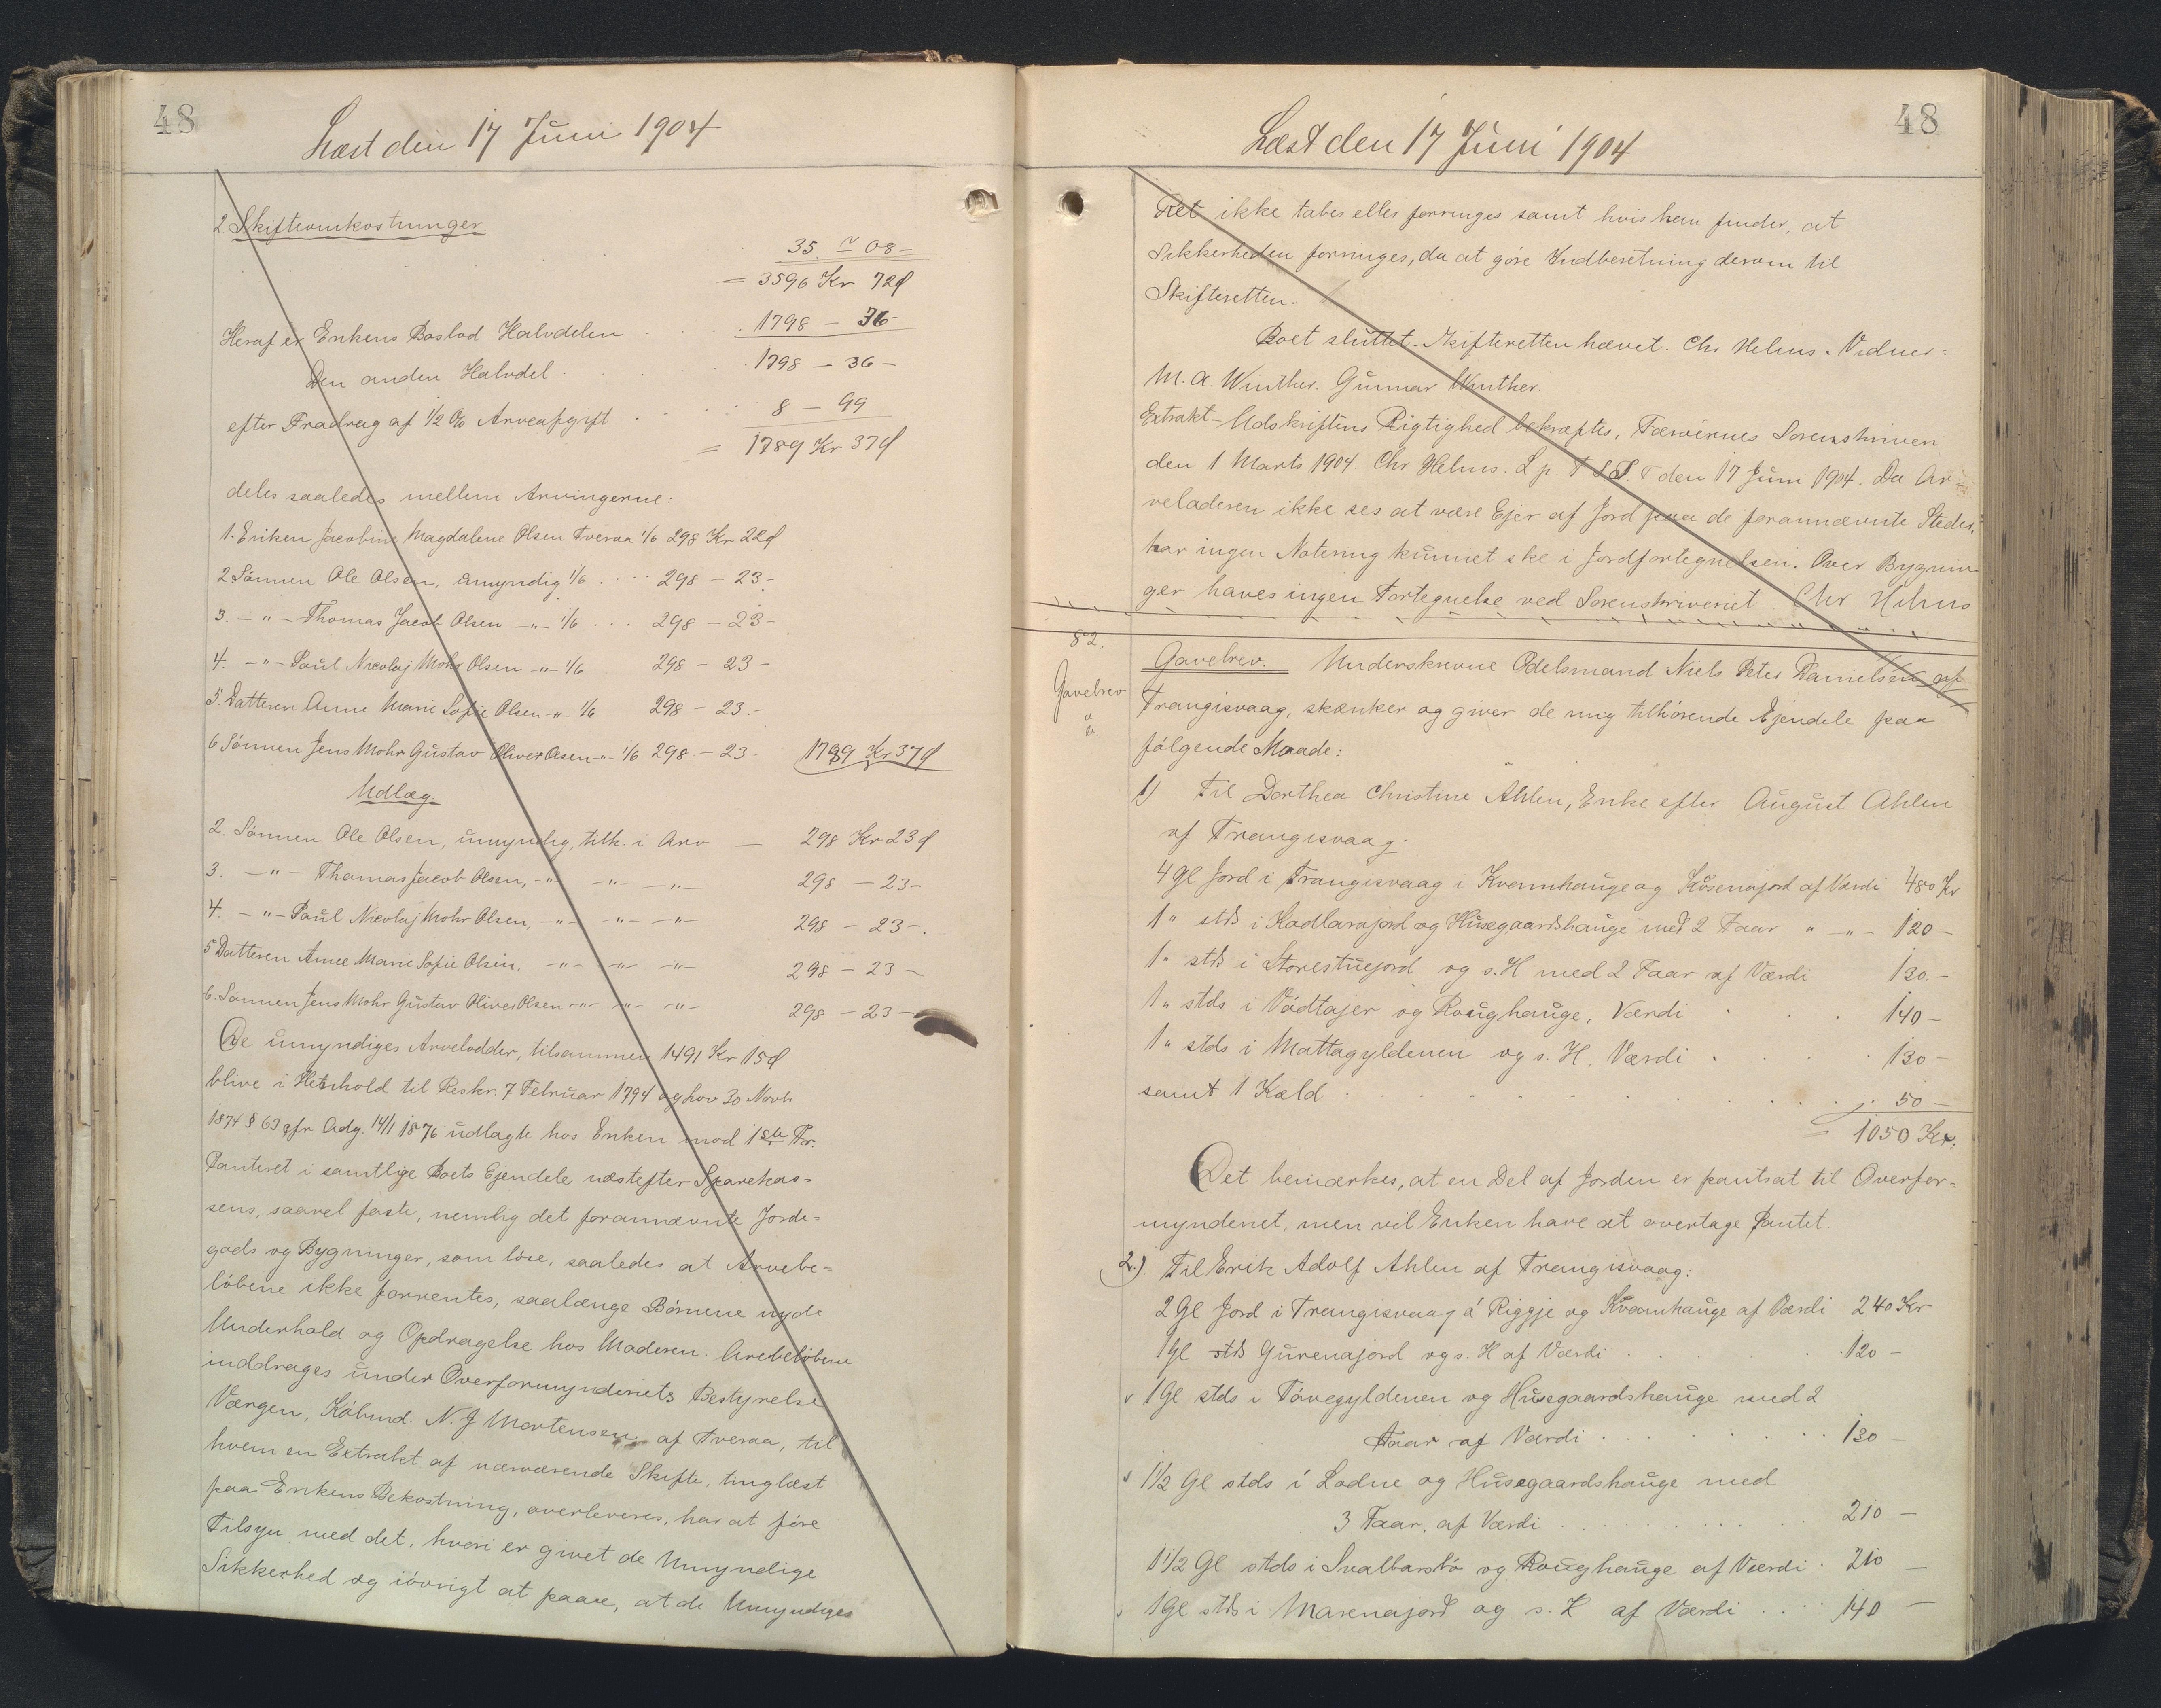 48
Læst den 17 Juni 1904
2. Skifteomkostninger
35 " 08 -
= 3596 Kr 72 ₰
Heraf er Enkens Boslod Halvdelen . . . 1798 - 36 -
Den anden Halvdel . . . . 1798 - 36 -
efter Fradrag af 1/2 % Arveafgift . . . 8 - 99
= 1789 Kr 37 ₰
deles saaledes mellem Arvingerne:
1. Enken Jacobine Magdalene Olsen Tveraa 1/6 298 Kr 22 ₰
2 Sönnen Ole Olsen, umyndig 1/6 . . . . 298 - 23 -
3. - " - Thomas Jacob Olsen - " - 1/6 . . . 298 - 23 -
4. - " - Paul Nicolaj Mohr Olsen - " - 1/6 298 - 23 -
5. Datteren Anne Marie Sofie Olsen - " - 1/6 298 - 23 -
6 Sönnen Jens Mohr Gustav Oliver Olsen - " - 1/6 298 - 23 - 1789 Kr 37 ₰
Udlæg.
2. Sönnen Ole Olsen, umyndig, tilk. i Arv - 298 Kr 23 ₰
3. - " - Thomas Jacob Olsen, - " - - " - - " - 298 - 23 -
4. - " - Paul Nicolaj Mohr Olsen, - " - - " - - " - 298 - 23 -.
5 Datteren Anne Marie Sofie Olsen, - " - - " - - " - 298 - 23 -
6. Sönnen Jens Mohr Gustav Oliver Olsen - " - - " - - " - 298 - 23 -
De umyndiges Arvelodder, tilsammen 1491 Kr 15 ₰
blive i Henhold til Reskr. 7 Februar 1794 og Lov 30 Novb
1874 § 63 cfr Adg. 14/1 1876 udlagte hos Enken mod 1ste Pr.
Panteret i samtlige Boets Ejendele næstefter Sparekas=
sens, saavel faste, nemlig det forannævnte Jorde=
gods og Bygninger, som löse, saaledes at Arvebe=
löbene ikke forrentes, saalænge Börnene nyde
Underhold og Opdragelse hos Moderen. Arvebelöbene
inddrages under Overformynderiets Bestyrelse
Værgen, Köbmd. N. J Mortensen af Tveraa, til
hvem en Extrakt af nærværende Skifte, tinglæst
paa Enkens Bekostning, overleveres, har at före
Tilsyn med det, hvori er givet de Umyndige
Sikkerhed og iövrigt at paase, at de Umyndiges
48
Læst den 17 Juni 1904
Ret ikke tabes eller forringes samt hvis han finder, at
Sikkerheden forringes, da at göre Indberetning derom til
Skifteretten.
Boet sluttet. Skifteretten hævet. Chr Helms. Vidner:
M. A. Winther. Gunnar Winther.
Extrakt-Udskriftens Rigtighed bekræftes, Færöernes Sorenskriveri
den 1 Marts 1904. Chr Helms. L p T S S T den 17 Juni 1904. Da Ar
veladeren ikke ses at være Ejer af Jord paa de forannævnte Steder,
har ingen Notering kunnet ske i Jordfortegnelsen. Over Bygnin-
ger haves ingen Fortegnelse ved Sorenskriveriet. Chr Helms
82.
Gavebrev
Gavebrev. Underskrevne Odelsmand Niels Peter Danielsen af
Trangisvaag, skænker og giver de mig tilhörende Ejendele paa
fölgende Maade:
1) Til Dorthea Christine Ahlen, Enke efter August Ahlen
af Trangisvaag.
4 Gl Jord i Trangisvaag i Kvannhauge og Kúsenajord af Værdi 480 Kr
1 " stds i Kadlarajord og Húsegaardshauge med 2 Faar " - " - 120 -
1 " stds i Storestuejord og s. H med 2 Faar af Værdi 130. -
1 " stds i Vödtajer og Roughauge, Værdi . . . 140 -
1 " stds i Mattagyldenen og s. H. Værdi . . . 130 -
samt 1 Kæld . . . . . . . . . 50 -
= 1050 Kr.
Det bemærkes, at en Del af Jorden er pantsat til Overfor=
mynderiet, men vil Enken have at overtage Pantet.
2.) Til Erik Adolf Ahlen af Trangisvaag:
2 Gl Jord i Trangisvaag á Riggje og Kvannhauge af Værdi 240 Kr
1 Gl stds Gurenajord og s. H af Værdi . . . . 120 -
v 1 Gl stds i Tövegyldenen og Húsegaardshauge med 2
Faar af Værdi . . . . . . . 130 -
v 1 1/2 Gl stds i Lodne og Húsegaardshauge med
3 Faar, af Værdi . . . . . . . 210 -
1 1/2 Gl stds i Svalbarsbö og Roughauge af Værdi . 210 -
v 1 Gl stds i Marenajord og s. H af Værdi . . . . 140 -